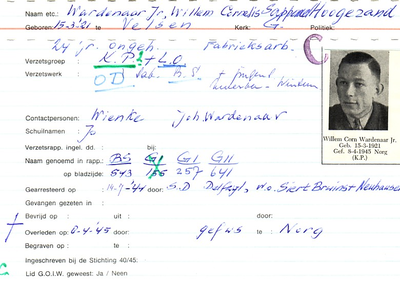 Naam etc.: Wardenaar Jr, Willem Cornelis Sappemeer Hoogezand
Geboren: 15.3.'21 te Velsen Kerk: G. Politiek:
24 jr. ongeh. Fabrieksarb.
Verzetsgroep : K.P. + L.O.
Verzetswerk : OD Sab. B.S.
Contactpersonen: Wienke Joh Wardenaar
Schuilnaam : Jo
Verzetsrapp. ingel. dd. : bij:
Naam genoemd in rapp.: BS GI GI GII
op bladzijde: 543 155 257 641
Gearresteerd op : 14-7-'44 door: S.D Delfzijl, w.o. Siert Bruins + Neuhauser
Gevangen gezeten in :
Bevrijd op : uit : door:
† Overleden op : 8-4-'45 door: gef ws te : Norg
Begraven op : te :
Ingeschreven bij de Stichting 40/45:
Lid G.O.I.W. geweest: Ja / Neen
Willem Corn Wardenaar Jr.
Geb. 15-3-1921
Gef. 8-4-1945 Norg
(K.P.)